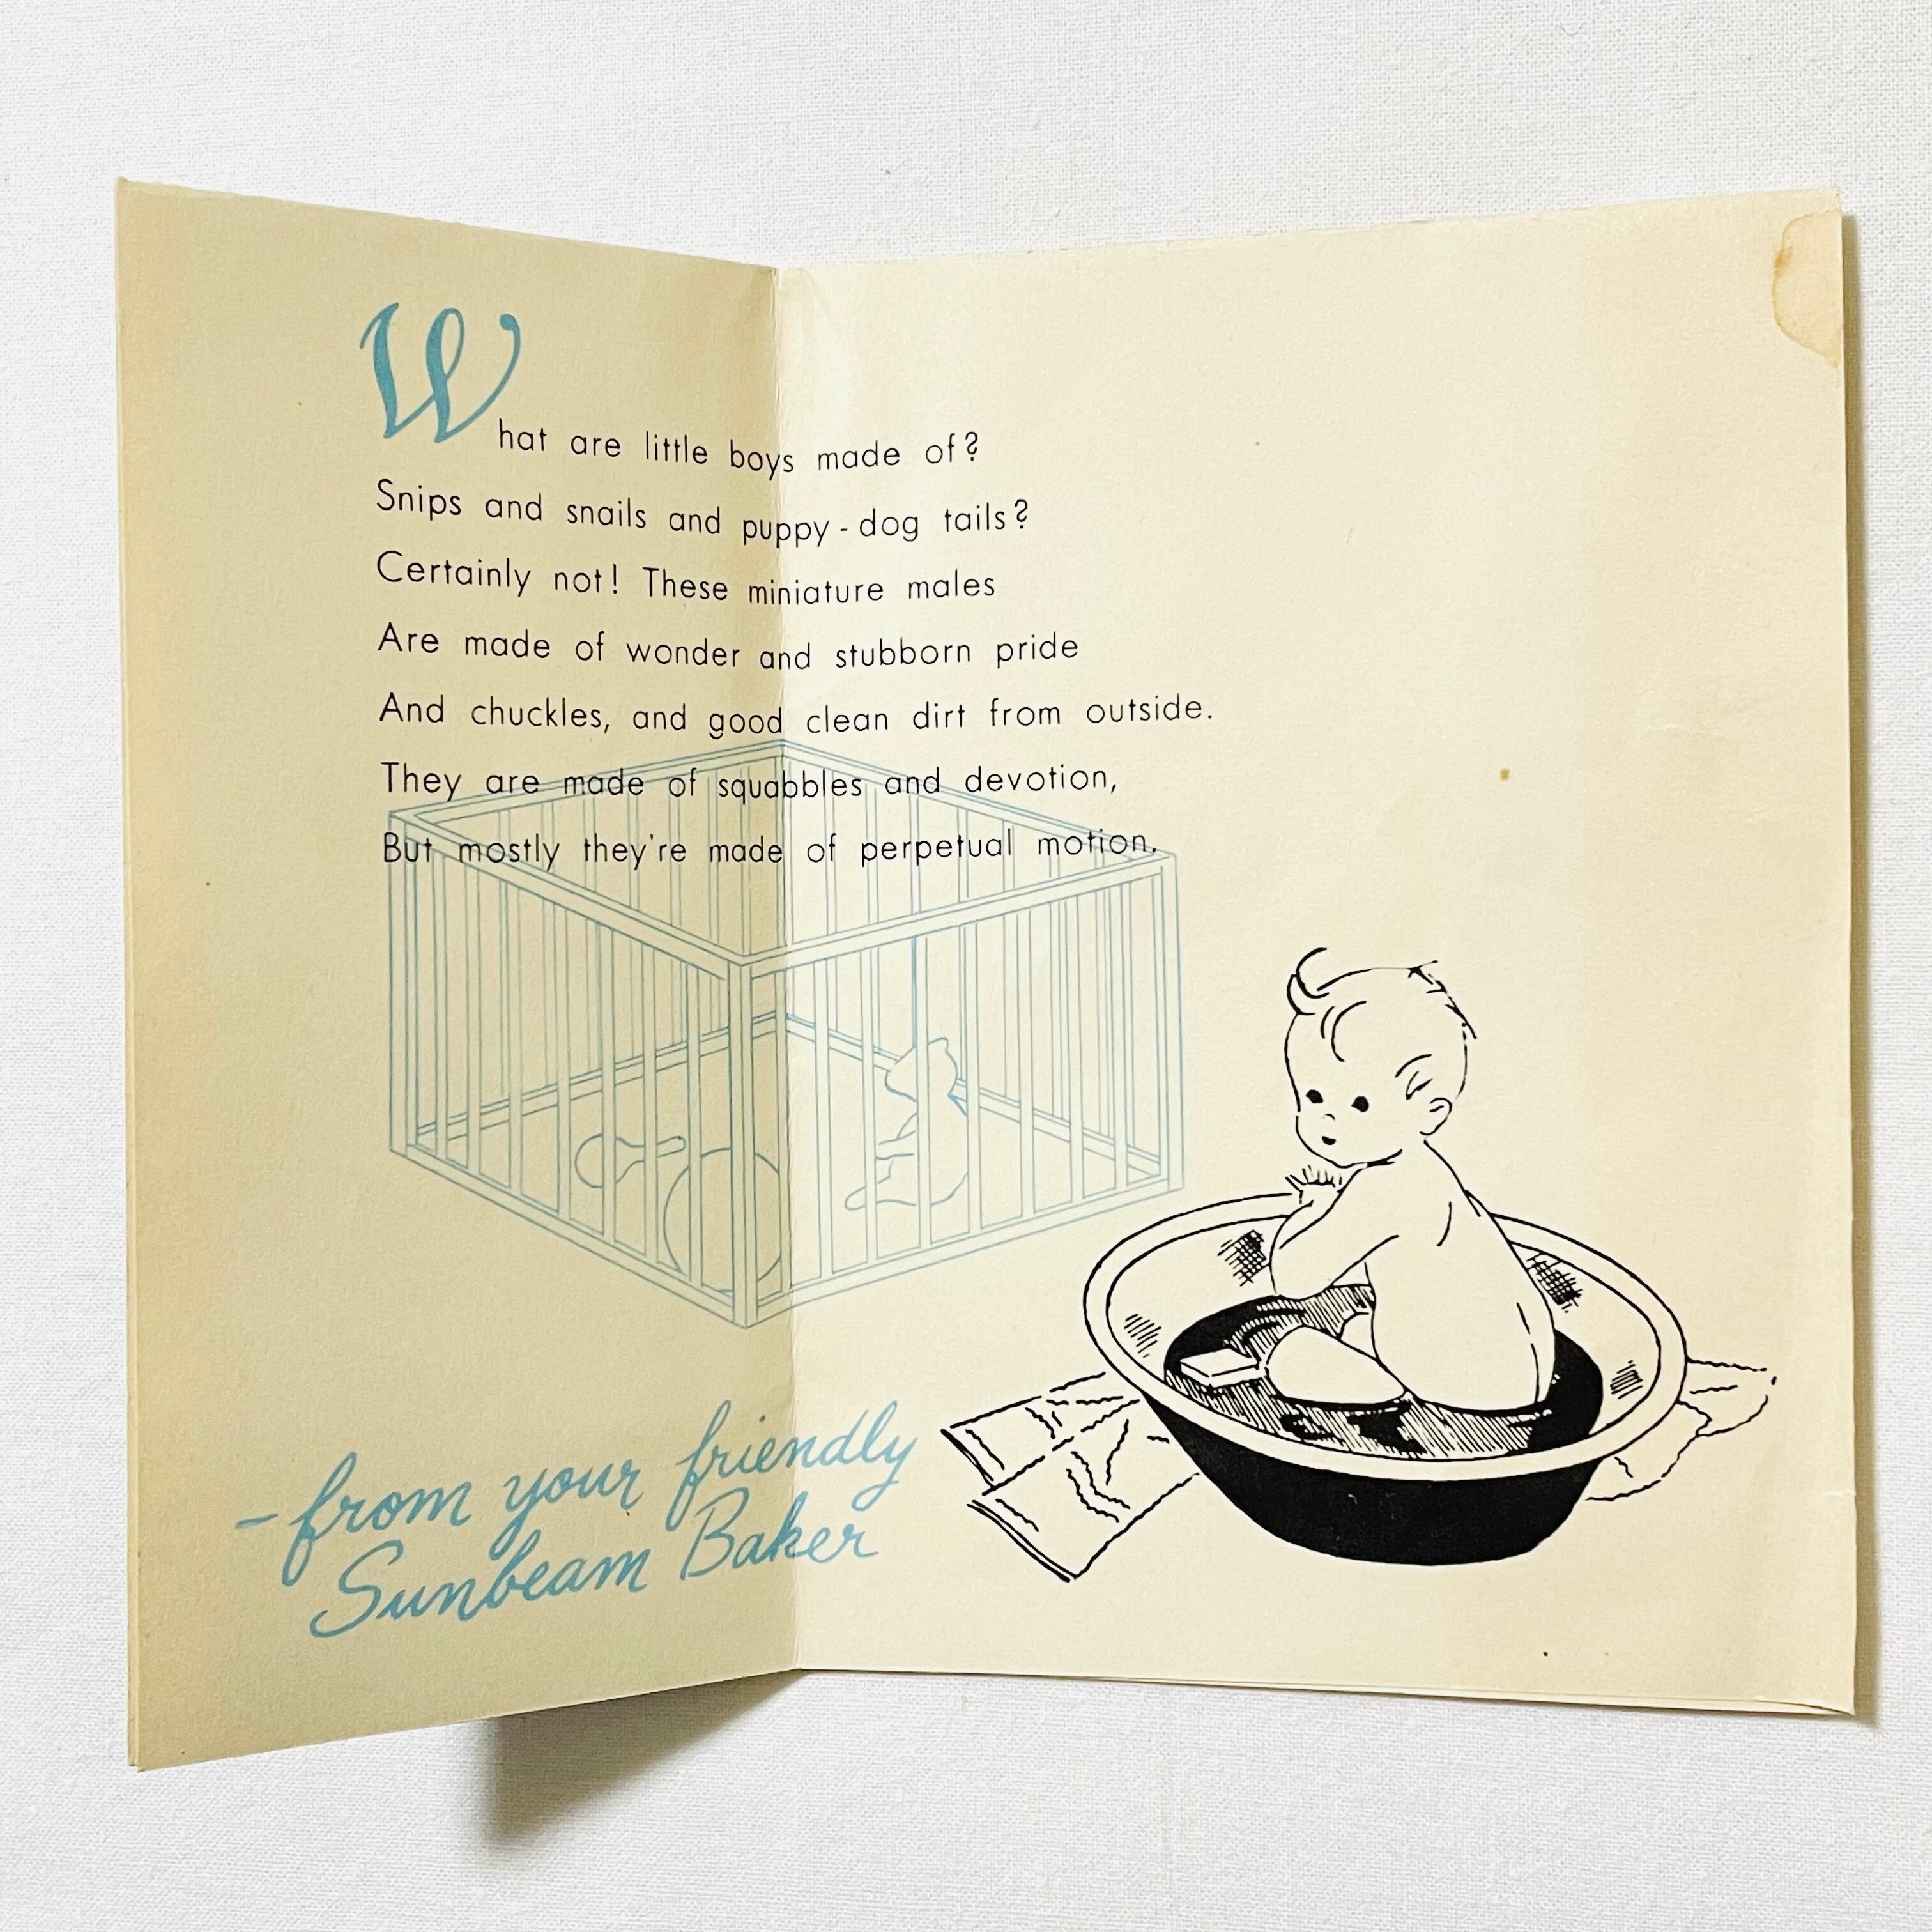 What are little boys made of?
Snips and snails and puppy-dog tails?
Certainly not! These miniature males
Are made of wonder and stubborn pride
And chuckles, and good clean dirt from outside.
They are made of squabbles and devotion,
But mostly they're made of perpetual motion.
- from your friendly
Sunbeam Baker